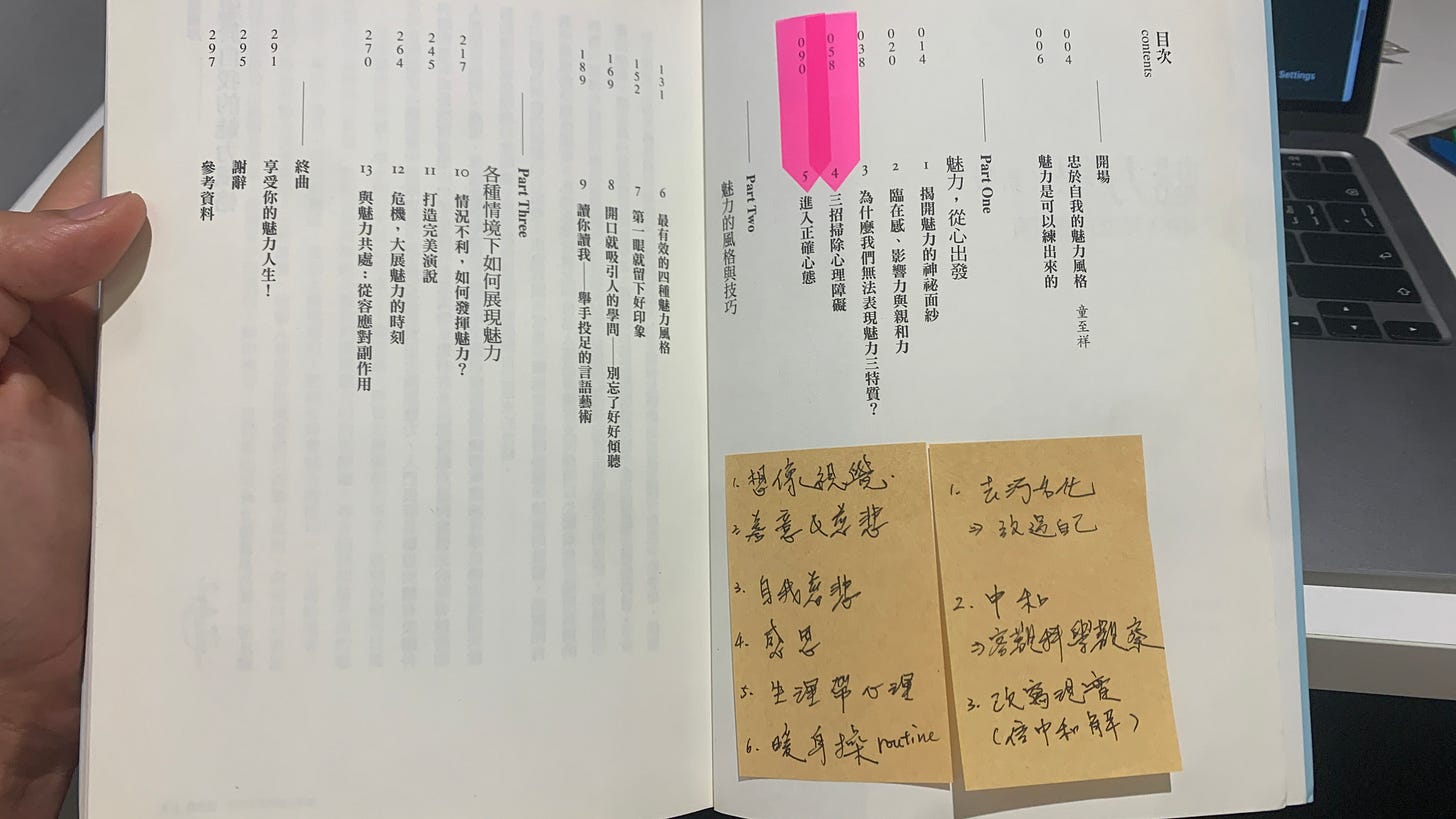 目次
contents
004
開場
忠於自我的魅力風格 童至祥
006
魅力是可以練出來的
Part One
魅力，從心出發
014
1 揭開魅力的神祕面紗
020
2 臨在感、影響力與親和力
038
3 為什麼我們無法表現魅力三特質？
058
4 三招掃除心理障礙
090
5 進入正確心態
Part Two
魅力的風格與技巧
131
6 最有效的四種魅力風格
152
7 第一眼就留下好印象
169
8 開口就吸引人的學問——別忘了好好傾聽
189
9 讀你讀我——舉手投足的言語藝術
Part Three
各種情境下如何展現魅力
217
10 情況不利，如何發揮魅力？
245
11 打造完美演說
264
12 危機，大展魅力的時刻
270
13 與魅力共處：從容應對副作用
終曲
291
享受你的魅力人生！
295
謝辭
297
參考資料
1. 想像、視覺.
2. 善意及慈悲
3. 自我慈悲
4. 感恩
5. 生理帶心理
6. 暖身操 routine
1. 去污名化
⇒ 放過自己
2. 中和
⇒ 客觀科學觀察
3. 改寫現實
(信中和解)
Settings